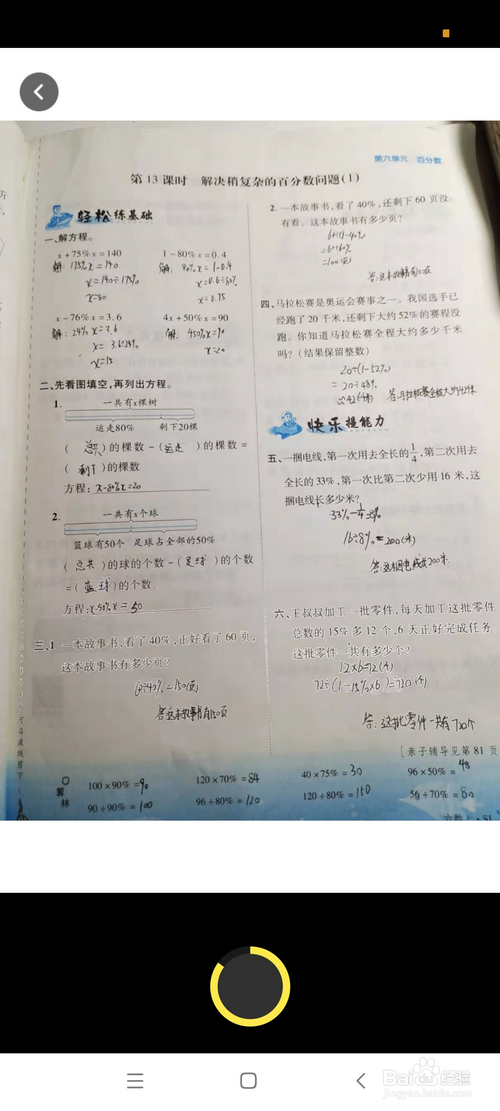 第六单元 百分数
第13课时 解决稍复杂的百分数问题(1)
轻松练基础
一、解方程。
x+75%x=140 1-80%x=0.4
解:175%x=140 解:80%x=1-0.4
x=140÷175% x=0.6÷80%
x=80 x=0.75
x-76%x=3.6 4x+50%x=90
解:24%x=3.6 解:450%x=90
x=3.6÷24% x=20
x=15
二、先看图填空,再列出方程。
1.
一共有x棵树
运走80% 剩下20棵
(总共)的棵数-(运走)的棵数=
(剩下)的棵数
方程:x-80%x=20
2.
一共有x个球
篮球有50个 足球占全部的50%
(总共)的球的个数-(足球)的个数
=(篮球)的个数。
方程:x-50%x=50
三、1.一本故事书,看了40%,正好看了60页,
这本故事书有多少页?
60÷40%=150(页)
答:这本故事书有150页
2.一本故事书,看了40%,还剩下60页没
有看。这本故事书有多少页?
60÷(1-40%)
=60÷60%
=100(页)
四、马拉松赛是奥运会赛事之一。我国选手已
经跑了20千米,还剩下大约52%的赛程没
跑。你知道马拉松赛全程大约多少千米
吗?(结果保留整数)
20÷(1-52%)
=20÷48%
≈42(千米)
快乐提能力
五、一捆电线,第一次用去全长的1/4,第二次用去
全长的33%,第一次比第二次少用16米,这
捆电线长多少米?
33%-1/4=8%
16÷8%=200(米)
答:这捆电线长200米
六、王叔叔加工一批零件,每天加工这批零件
总数的15%多12个,6天正好完成任务
这批零件一共有多少个?
12×6=72(个)
72÷(1-15%×6)=720(个)
答:这批零件一共有720个
[亲子辅导见第81页
算林
100×90%=90 120×70%=84 40×75%=30 96×50%=48
90÷90%=100 96÷80%=120 120÷80%=150 56÷70%=80
Baidu经验
jingyan.baidu.com